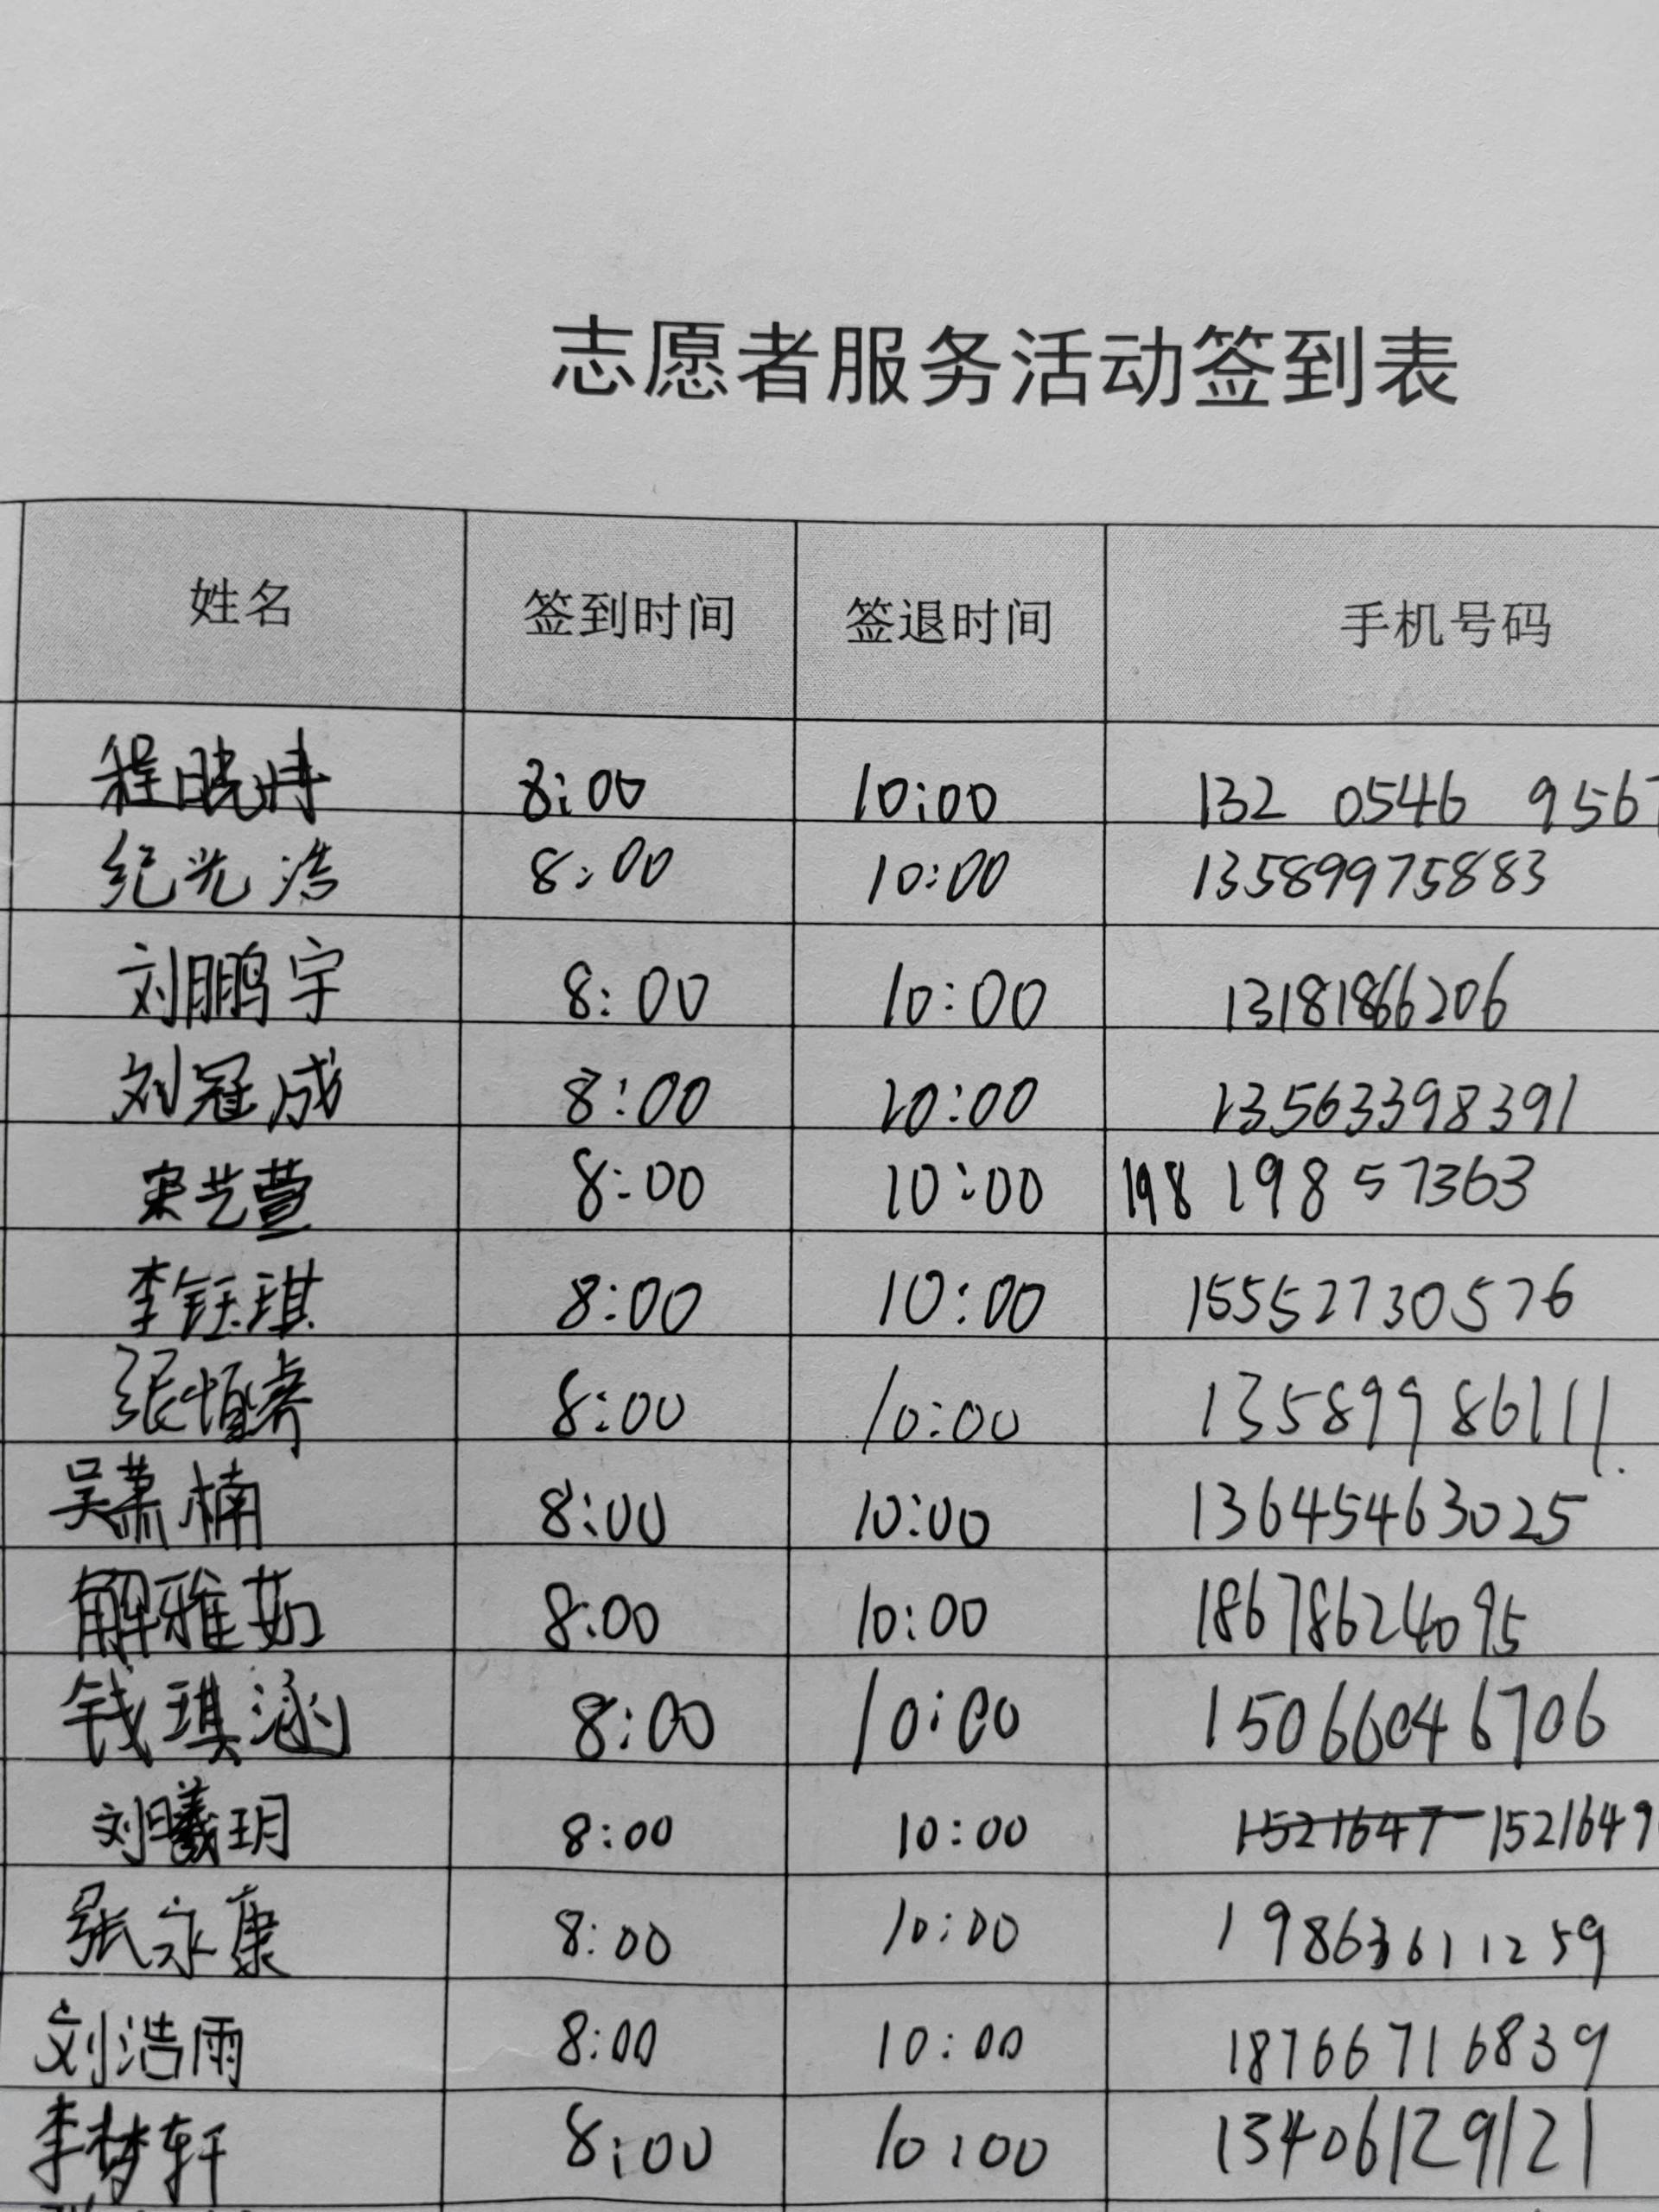 志愿者服务活动签到表
姓名 签到时间 签退时间 手机号码
程晓诗 8:00 10:00 132 0546 9567
纪光浩 8:00 10:00 13589975883
刘鹏宇 8:00 10:00 13181866206
刘冠成 8:00 10:00 13563398391
宋艺萱 8:00 10:00 198 198 57363
李钰琪 8:00 10:00 15552730576
张恒睿 8:00 10:00 13589986111.
吴萧楠 8:00 10:00 13645463025
解雅茹 8:00 10:00 18678624095
钱琪涵 8:00 10:00 15066046706
刘曦玥 8:00 10:00 1521647 1521649
张永康 8:00 10:00 19863611259
刘浩雨 8:00 10:00 18766716839
李梦轩 8:00 10:00 13406129121